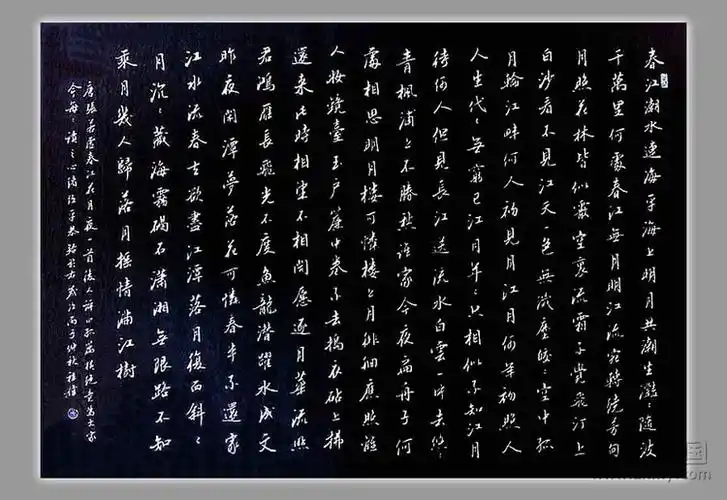 春江潮水連海平海上明月共潮生灩〻隨波
千萬里何處春江無月明江流宛轉繞芳甸
月照花林皆似霰空裏流霜不覺飛汀上
白沙看不見江天一色無纖塵皎〻空中孤
月輪江畔何人初見月江月何年初照人
人生代〻無窮已江月年〻只相似不知江月
待何人但見長江送流水白雲一片去悠〻
青楓浦上不勝愁誰家今夜扁舟子何
處相思明月樓可憐樓上月徘徊應照離
人妝鏡臺玉戶簾中卷不去搗衣砧上拂
還來此時相望不相聞願逐月華流照
君鴻雁長飛光不度魚龍潛躍水成文
昨夜閑潭夢落花可憐春半不還家
江水流春去欲盡江潭落月復西斜〻
月沉〻藏海霧碣石瀟湘無限路不知
乘月幾人歸落月搖情滿江樹
唐張若虛春江花月夜一首後人評曰孤篇橫絕竟為大家
今每〻讀之心緒